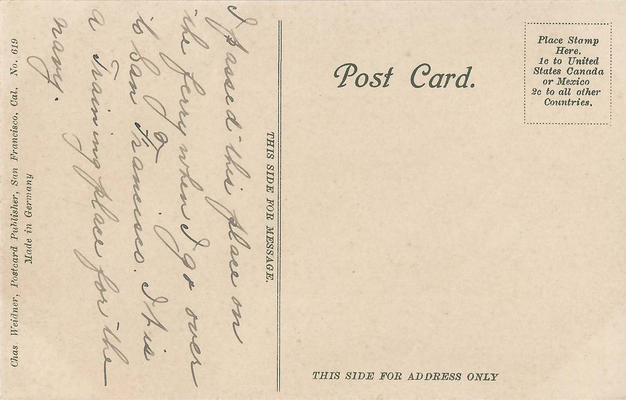 I passed this place on
the ferry when I go over
to San Francisco. It is
a Training place for the
navy.
THIS SIDE FOR MESSAGE.
Post Card.
Place Stamp
Here.
1c to United
States Canada
or Mexico
2c to all other
Countries.
THIS SIDE FOR ADDRESS ONLY
Chas Weidner, Postcard Publisher, San Francisco, Cal. No. 619
Made in Germany